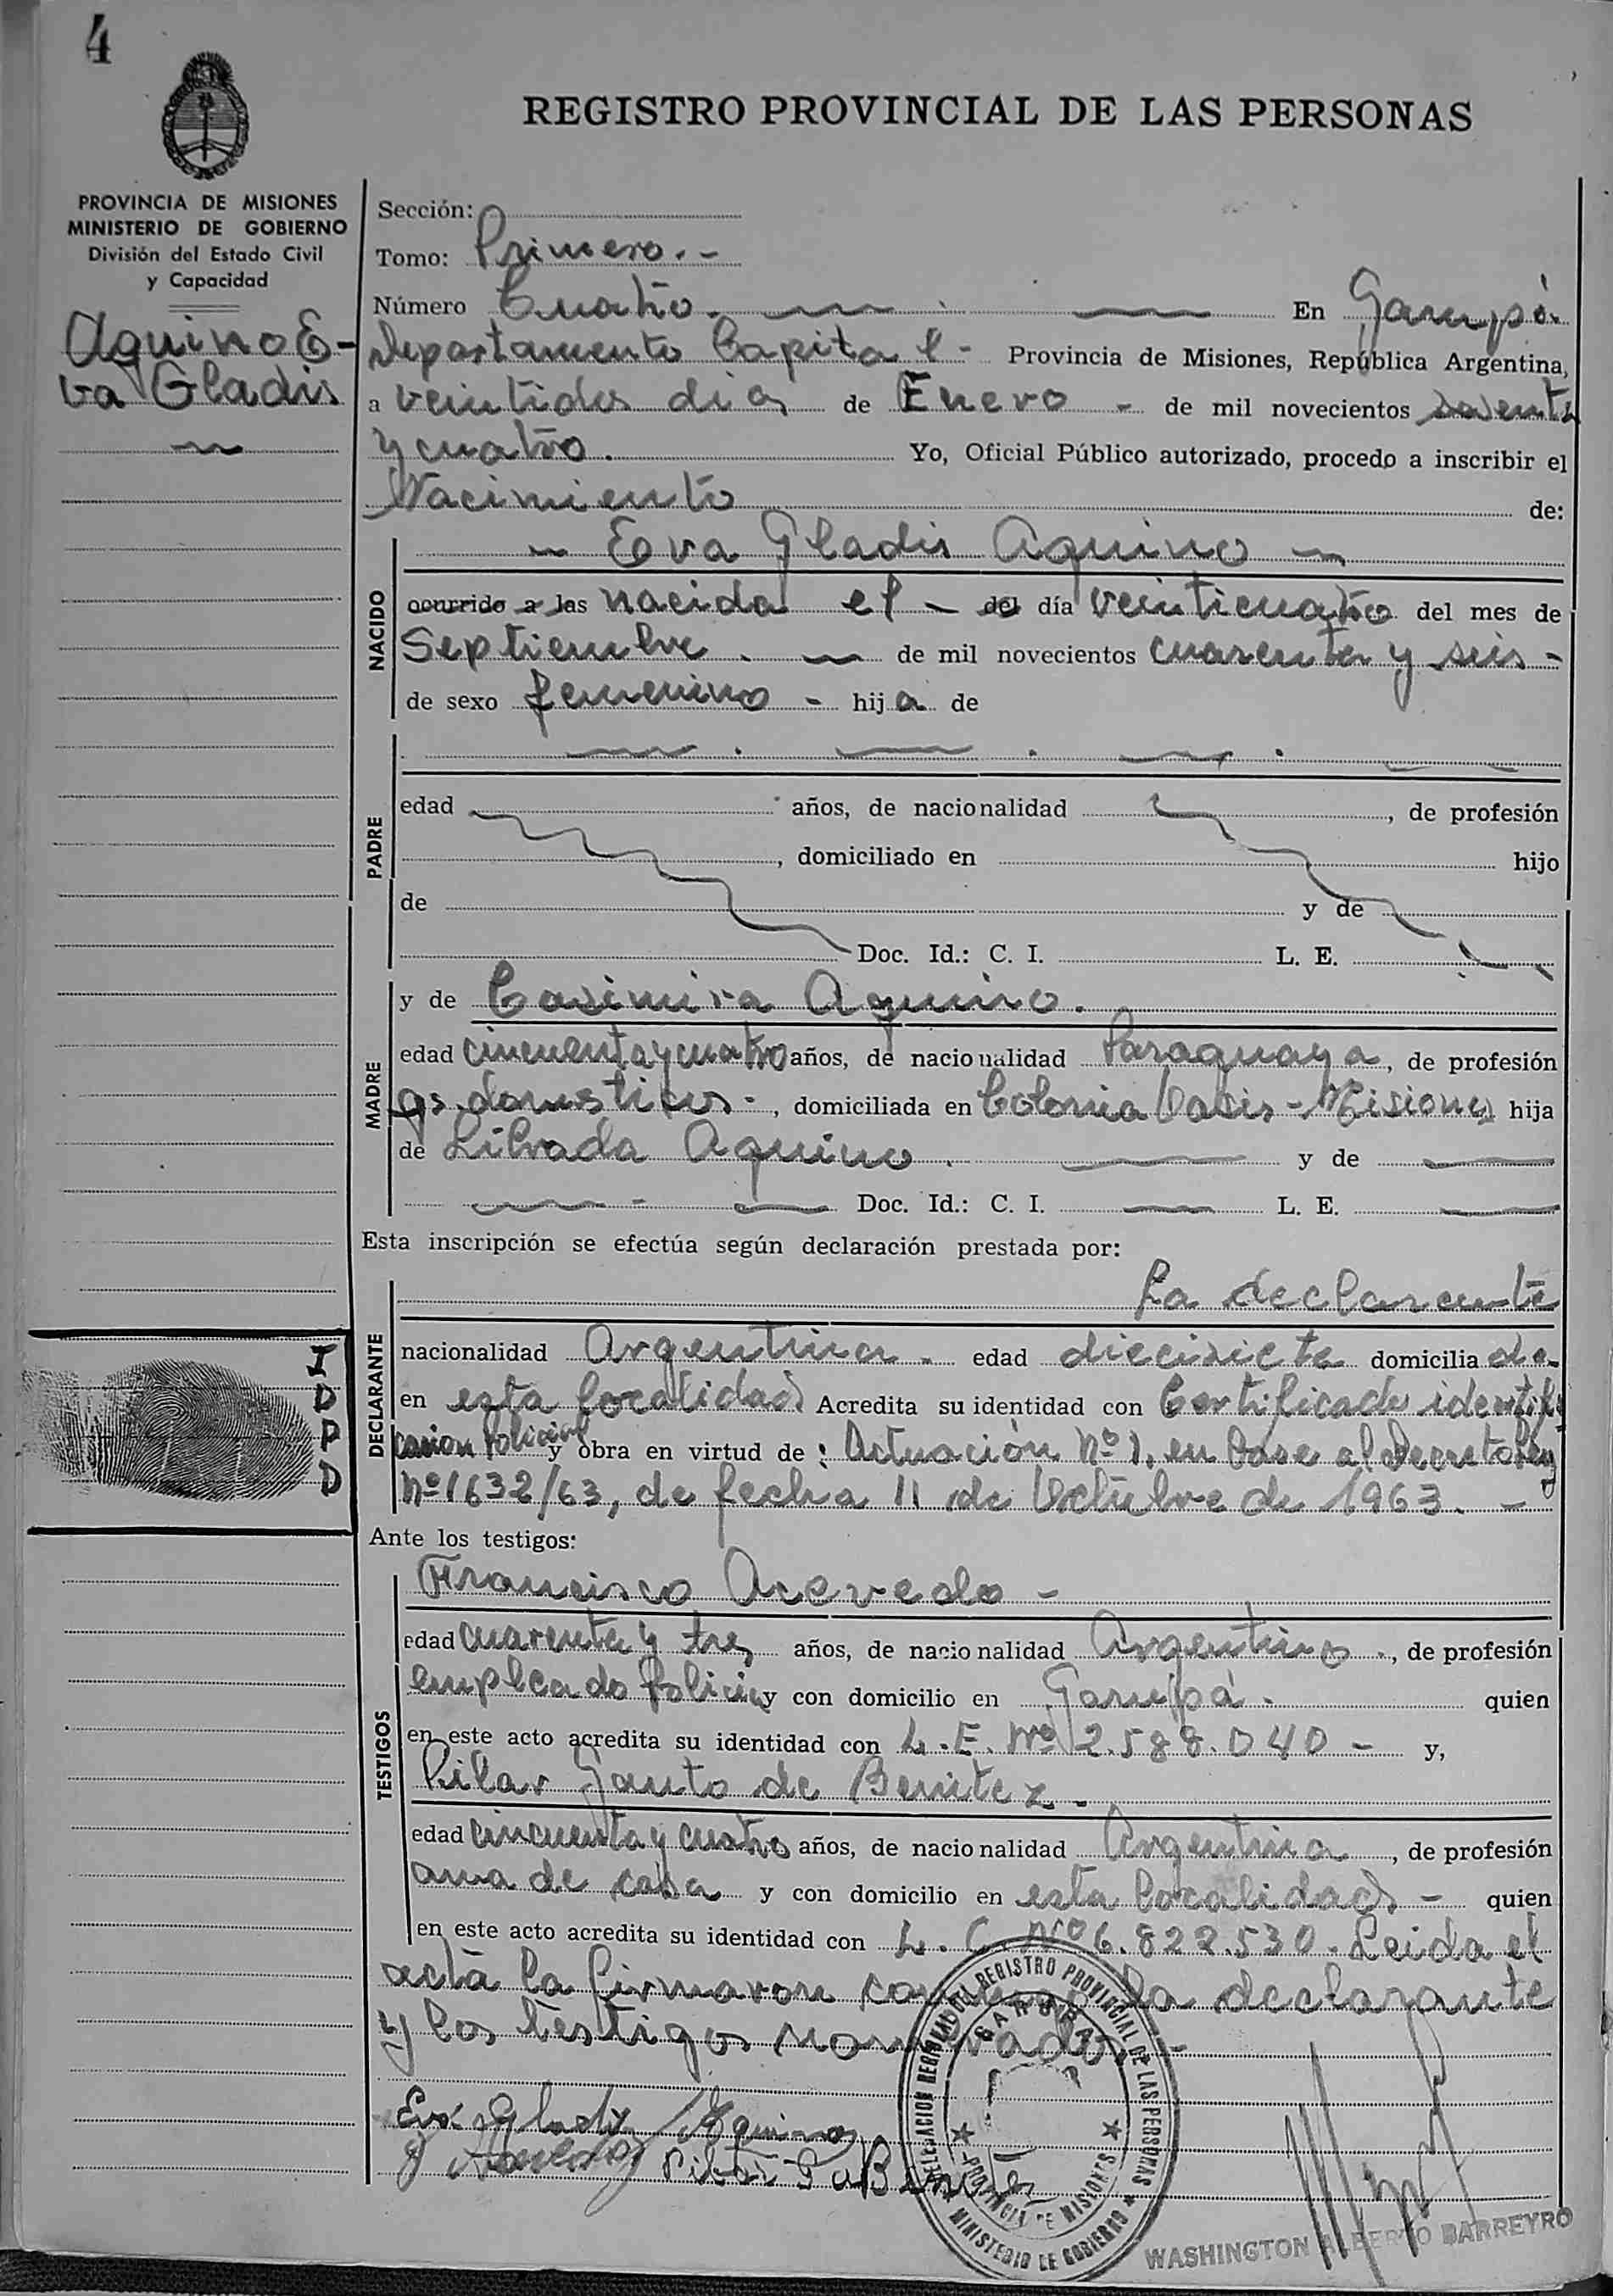 4
REGISTRO PROVINCIAL DE LAS PERSONAS
PROVINCIA DE MISIONES
MINISTERIO DE GOBIERNO
División del Estado Civil
y Capacidad
Aquino E-
va Gladis
Sección:
Tomo: Primero.-
Número Cuatro. En Garupá
Departamento Capital - Provincia de Misiones, República Argentina,
a veintidos dias de Enero - de mil novecientos sesenta
y cuatro. Yo, Oficial Público autorizado, procedo a inscribir el
Nacimiento de:
NACIDO
Eva Gladis Aquino
ocurrido a las nacida el - del día veinticuatro del mes de
Septiembre. de mil novecientos cuarenta y seis -
de sexo femenino - hija de
PADRE
edad años, de nacionalidad , de profesión
, domiciliado en hijo
de y de
Doc. Id.: C. I. L. E.
MADRE
y de Casimira Aquino.
edad cincuenta y cuatro años, de nacionalidad Paraguaya, de profesión
qs. domesticos-, domiciliada en Colonia Oasis - Misiones hija
de Librada Aquino. y de
Doc. Id.: C. I. L. E.
Esta inscripción se efectúa según declaración prestada por:
DECLARANTE
La declarante
nacionalidad Argentina. edad diecisiete domiciliada
en esta localidad Acredita su identidad con Certificado identifi
cacion Policial y obra en virtud de: Actuación Nº 1, en base al decreto ley
Nº 1632/63, de fecha 11 de Octubre de 1963. -
I
D
P
D
Ante los testigos:
TESTIGOS
Francisco Acevedo -
edad cuarenta y tres años, de nacionalidad Argentino., de profesión
empleado Policia y con domicilio en Garupá. quien
en este acto acredita su identidad con L. E. Nº 2.588.040 - y,
Pilar Gauto de Benitez.
edad cincuenta y cuatro años, de nacionalidad Argentina, de profesión
ama de casa y con domicilio en esta localidad - quien
en este acto acredita su identidad con L. C. Nº 6.822.530. Leida el
acta la firmaron conmigo la declarante
y los testigos nombrados. -
Eva Gladis Aquino
DELEGACION REGIONAL DEL REGISTRO PROVINCIAL DE LAS PERSONAS
GARUPA
PROVINCIA DE MISIONES
MINISTERIO DE GOBIERNO
WASHINGTON ALBERTO BARREYRO